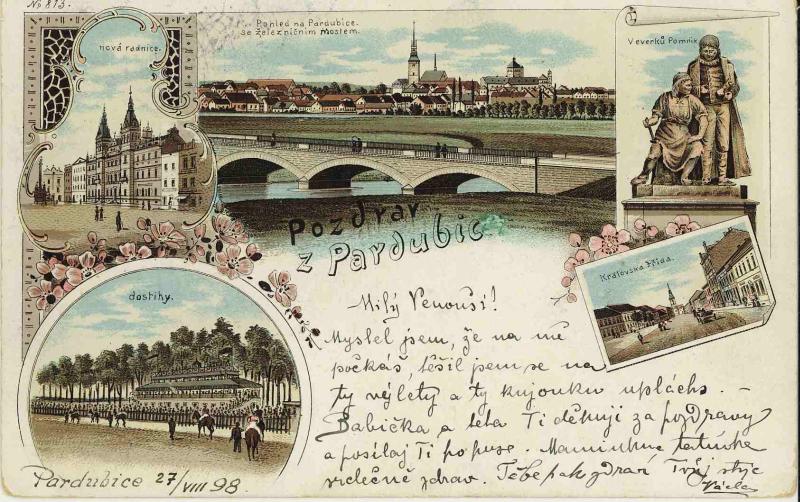 No 813.
nová radnice.
Pohled na Pardubice.
se železničním mostem.
Veverků Pomník
Pozdrav
z Pardubic
Královská třída.
dostihy.
Milý Venouši!
Myslel jsem, že na mě
počkáš, těšil jsem se na
ty výlety a ty
Babička a teta Ti děkují za pozdravy
a posílají Ti po puse. Maminku tatínka
srdečně zdraví. Tebe pak zdraví Tvůj strýc
Václav
Pardubice 27/VIII 98.